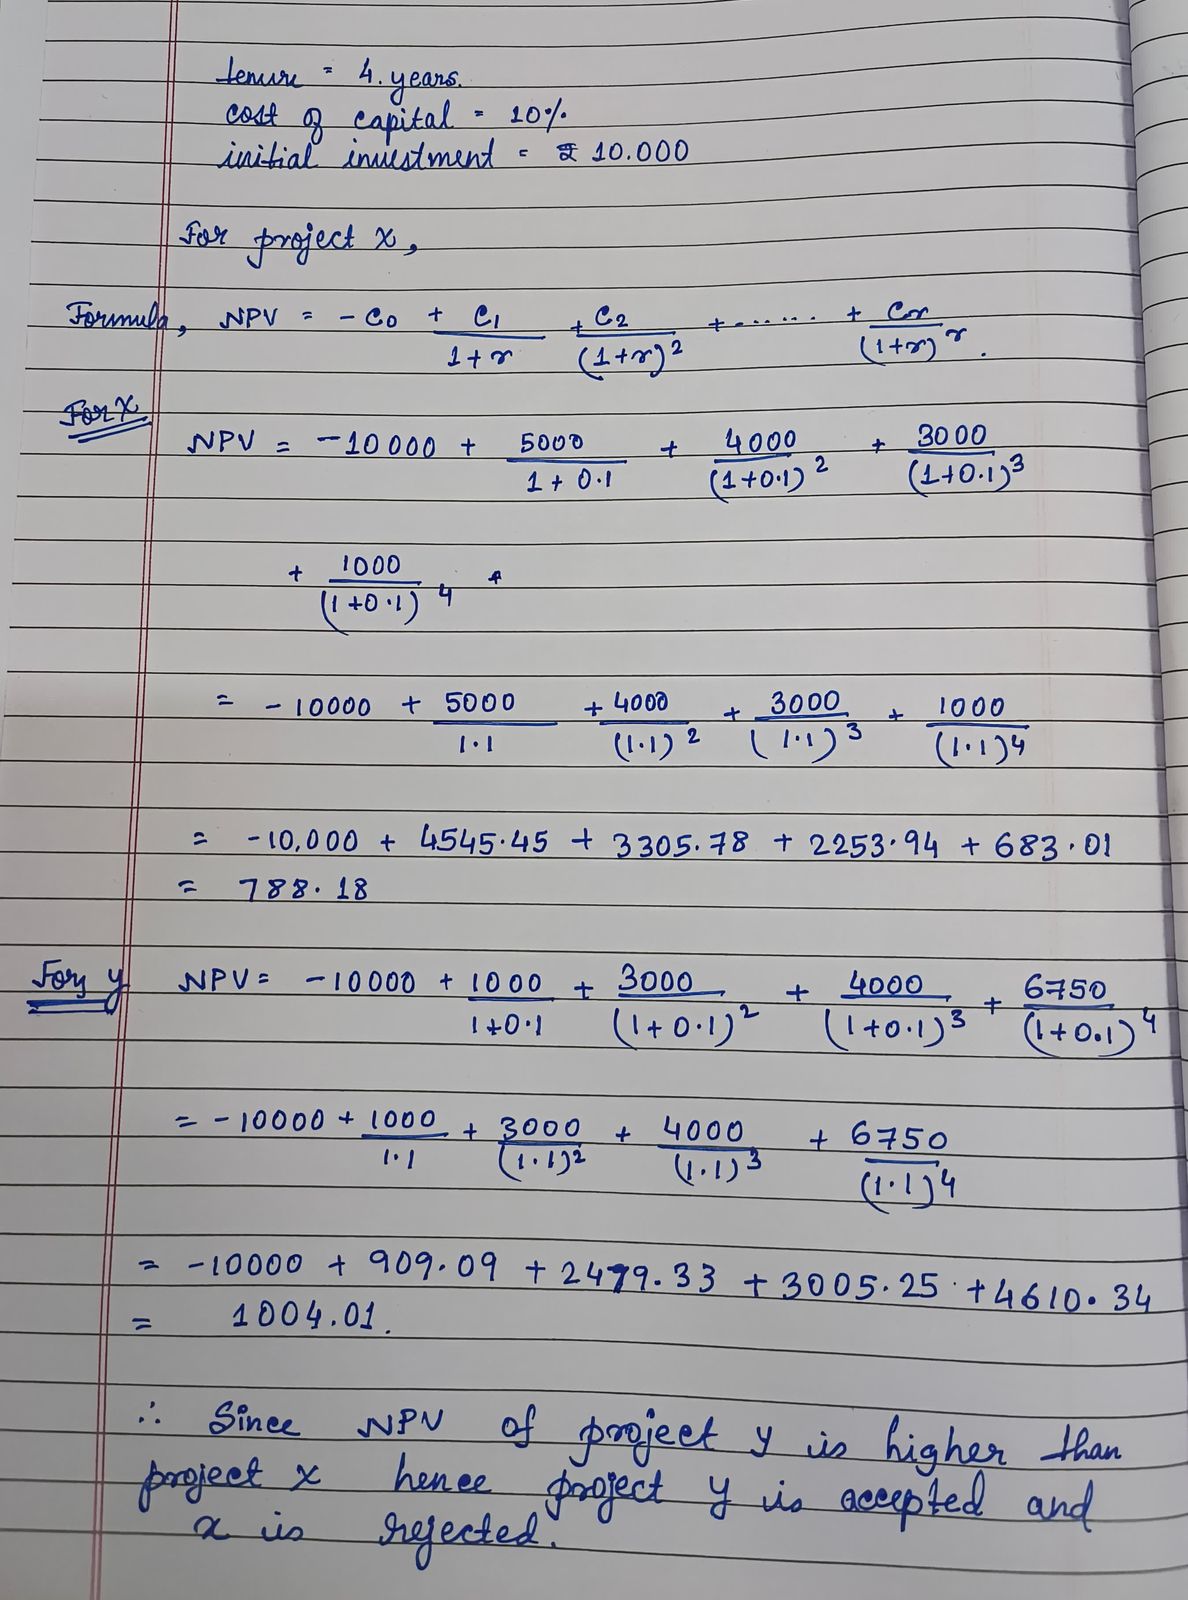 tenure = 4. years.
cost of capital = 10%
initial investment = ₹ 10.000
For project x,
Formula, NPV = - C0 + C1/1+r + C2/(1+r)2 + ...... + Cr/(1+r)r.
For x
NPV = -10000 + 5000/1+0.1 + 4000/(1+0.1)2 + 3000/(1+0.1)3
+ 1000/(1+0.1)4 +
= - 10000 + 5000/1.1 + 4000/(1.1)2 + 3000/(1.1)3 + 1000/(1.1)4
= -10,000 + 4545.45 + 3305.78 + 2253.94 + 683.01
= 788.18
For y NPV = -10000 + 1000/1+0.1 + 3000/(1+0.1)2 + 4000/(1+0.1)3 + 6750/(1+0.1)4
= -10000 + 1000/1.1 + 3000/(1.1)2 + 4000/(1.1)3 + 6750/(1.1)4
= -10000 + 909.09 + 2479.33 + 3005.25 + 4610.34
= 1004.01.
∴ Since NPV of project y is higher than
project x hence project y is accepted and
x is rejected.